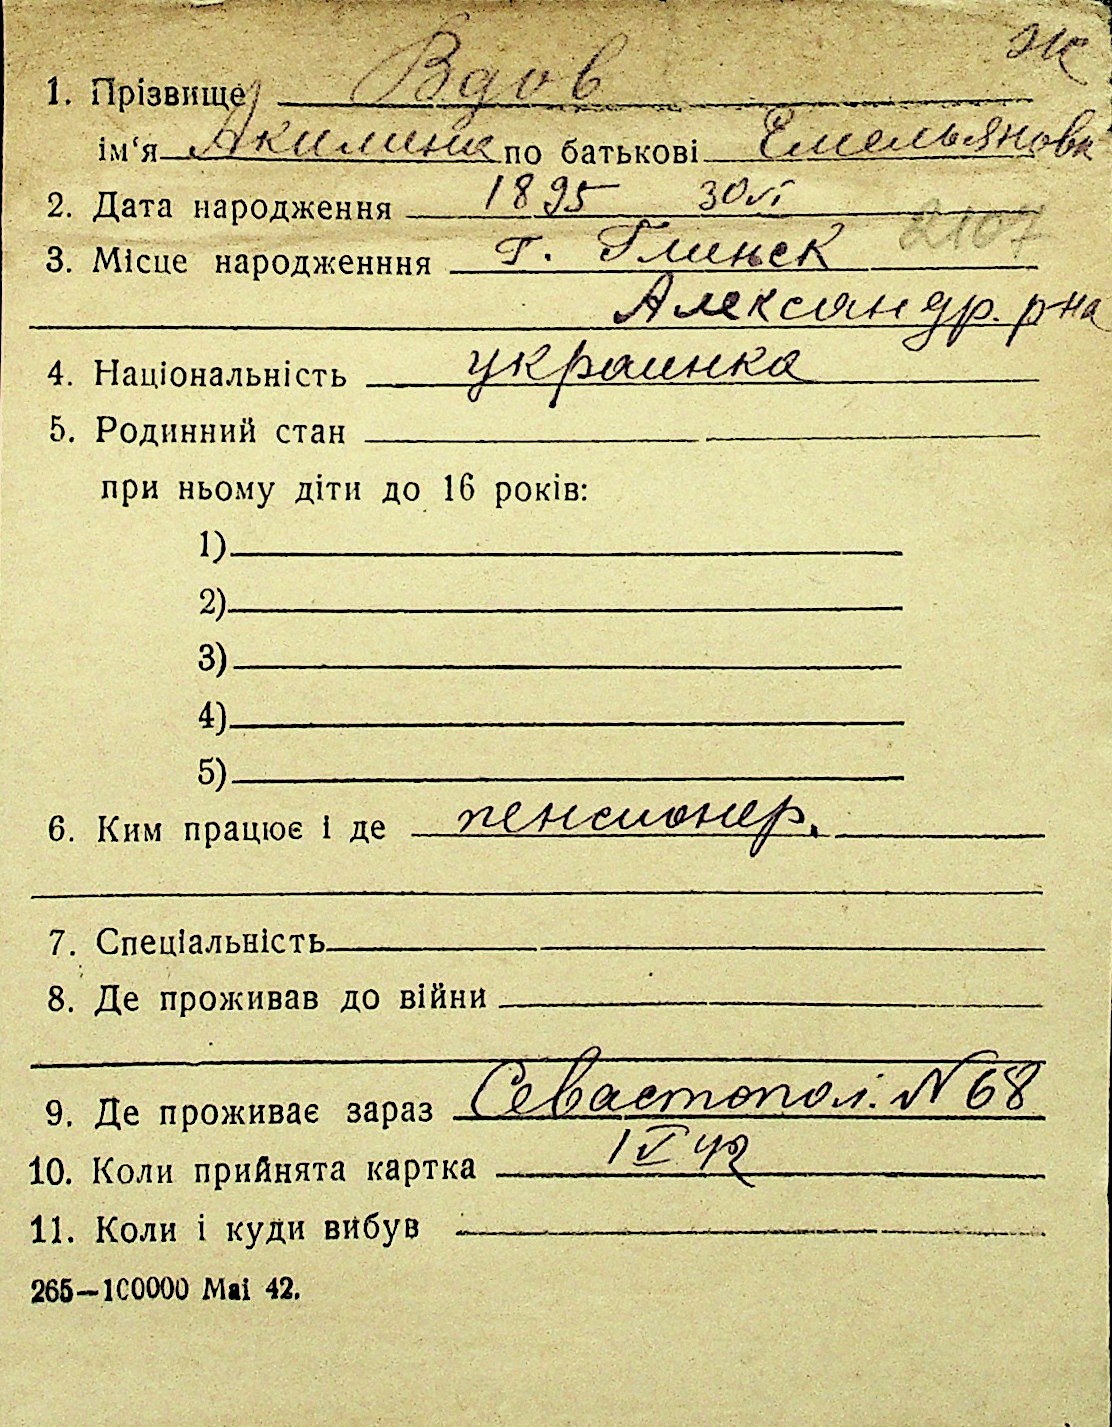 ж
1. Прізвище Вдов
ім'я Акилина по батькові Емельяновн
2. Дата народження 1895 30 VI
2107
3. Місце народженння г. Глинск
Александр. р-на
4. Національність украинка
5. Родинний стан
при ньому діти до 16 років:
1)
2)
3)
4)
5)
6. Ким працює і де пенсионер.
7. Спеціальність
8. Де проживав до війни
9. Де проживає зараз Севастопол. N 68
10. Коли прийнята картка 1 V 42
11. Коли і куди вибув
265—100000 Mai 42.